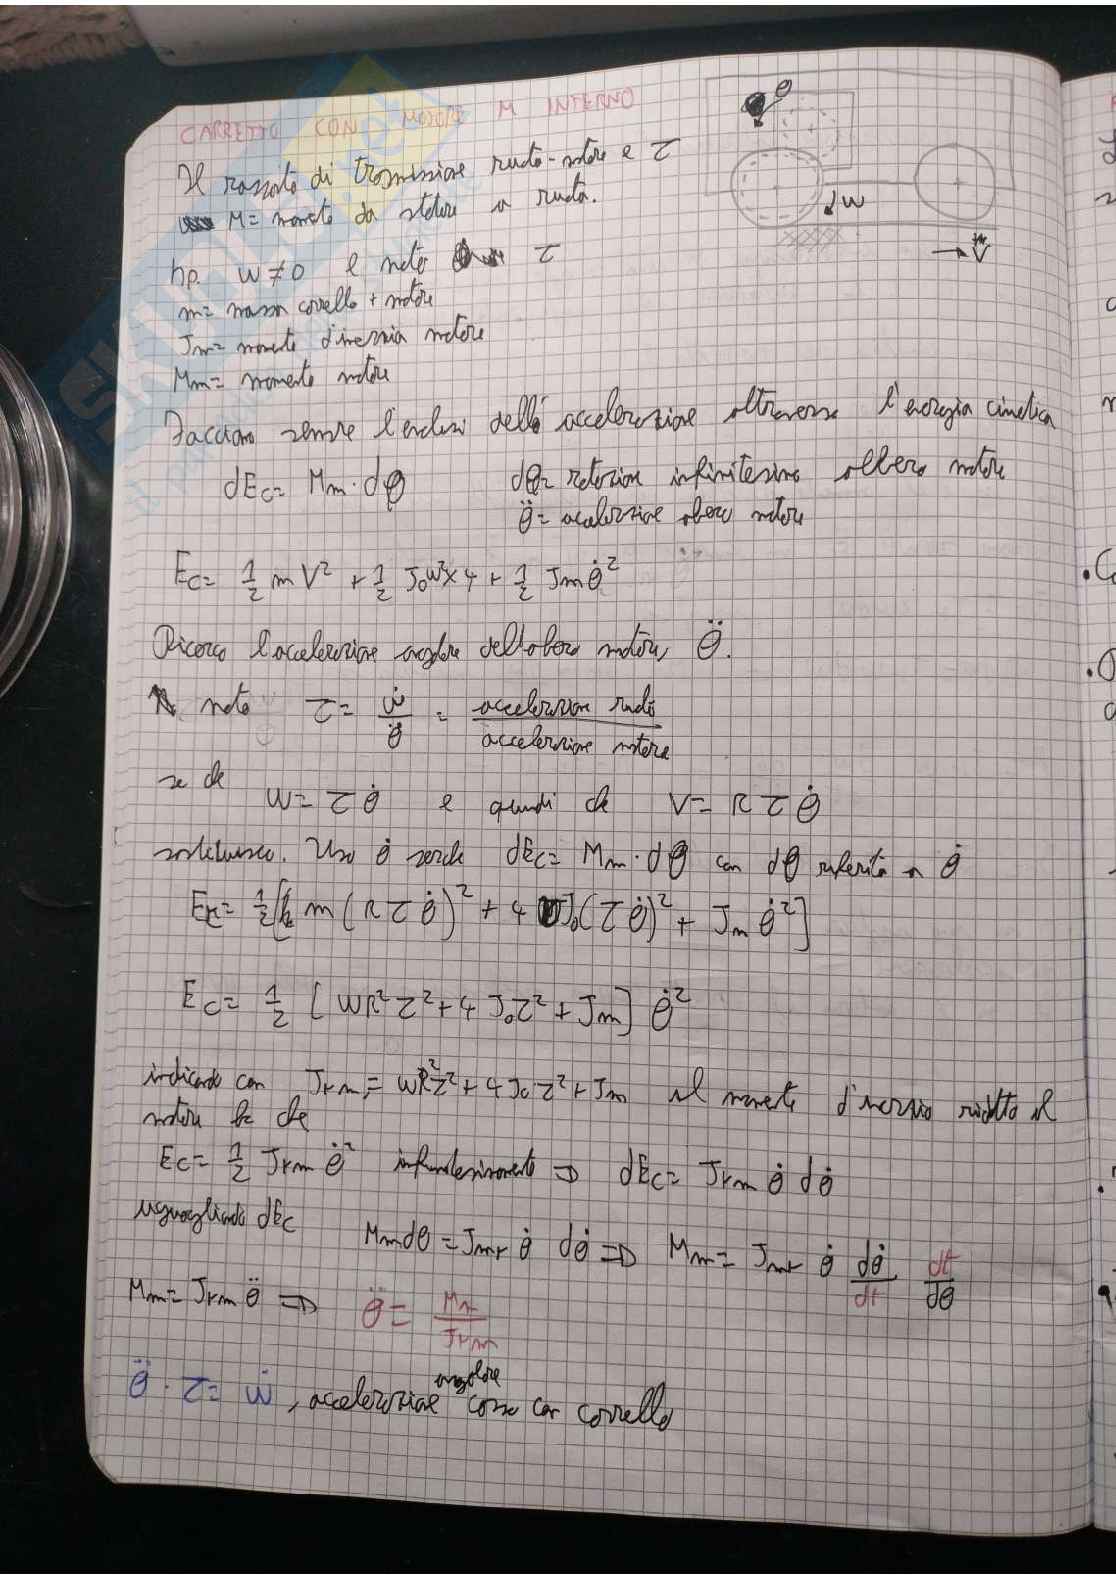 CARRETTO CON MOTORE M INTERNO
Il rapporto di trasmissione ruota-motore è τ
M= momento da motore a ruota.
hp. W≠0 e noto τ
m= massa carrello + motore
Jm= momento d'inerzia motore
Mm= momento motore
Facciamo sempre l'analisi dell'accelerazione attraverso l'energia cinetica
dEc= Mm·dθ dθ= rotazione infinitesima albero motore
θ̈= accelerazione albero motore
Ec= 1/2 m V² + 1/2 J₀w²×4 + 1/2 Jm θ̇²
Ricerco l'accelerazione angolare dell'albero motore, θ̈.
noto τ= ẇ/θ̈ = accelerazione ruota/accelerazione motore
se de W= τ θ̇ e quindi che V= R τ θ̇
sostituisco. Uso θ̇ perché dEc= Mm·dθ con dθ riferita a θ̇
Ec= 1/2[m(Rτθ̇)² + 4 J₀(τθ̇)² + Jm θ̇²]
Ec= 1/2 [WR²τ²+4 J₀τ²+Jm] θ̇²
indicando con Jrm= WR²τ²+4J₀τ²+Jm il momento d'inerzia ridotto al
motore ho che
Ec= 1/2 Jrm θ̇² ⇒ dEc= Jrm θ̇ dθ̇
uguagliando dEc Mmdθ = Jmr θ̇ dθ̇ ⇒ Mm= Jmr θ̇ dθ̇/dt dt/dθ
Mm= Jrm θ̈ ⇒ θ̈= Mm/Jrm
θ̈·τ= ẇ, accelerazione angolare con carrello
θ
W
V